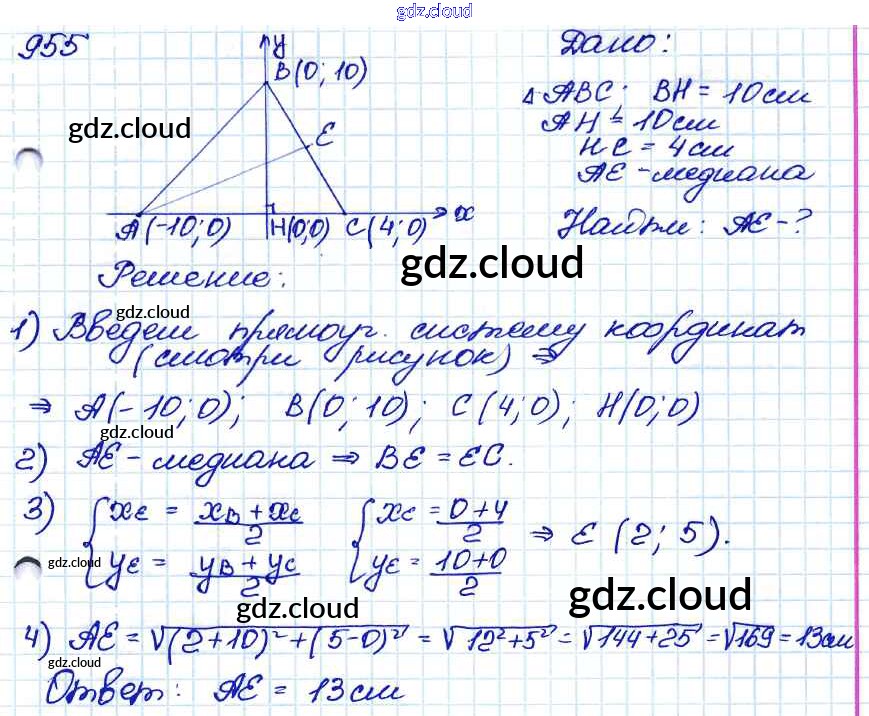 gdz.cloud
955
y
B(0; 10)
E
A(-10; 0)
H(0;0)
C(4; 0)
x
Дано:
△ABC; BH = 10см
AH = 10см
HC = 4см
AE - медиана
Найти: AE - ?
gdz.cloud
gdz.cloud
Решение:
gdz.cloud
1) Введем прямоуг. систему координат
(смотри рисунок) ⇒
⇒ A(-10; 0); B(0; 10); C(4; 0); H(0; 0)
gdz.cloud
2) AE - медиана ⇒ BE = EC.
3) { xE = (xB + xC)/2 { xC = (0+4)/2 ⇒ E (2; 5).
{ yE = (yB + yC)/2 { yE = (10+0)/2
gdz.cloud
gdz.cloud
gdz.cloud
4) AE = √((2+10)² + (5-0)²) = √(12²+5²) = √(144+25) = √169 = 13см
gdz.cloud
Ответ: AE = 13см